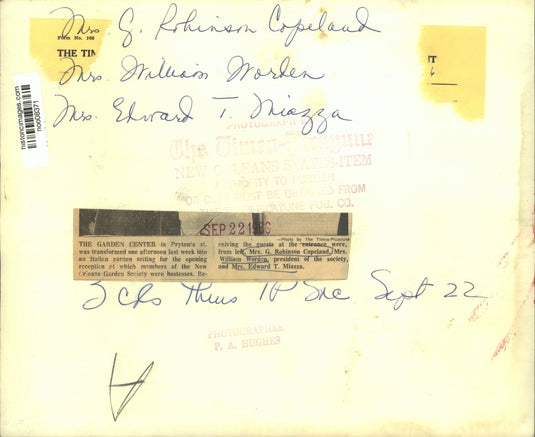 Mrs. G. Robinson Copeland
Form No. 108
THE TIM
Mrs. William Worden
Mrs. Edward T. Miazza
historicimages.com
PHOTOGRAPH
The Times-Picayune
NEW ORLEANS STATES-ITEM
AUTHORITY TO PUBLISH
OR COPY MUST BE OBTAINED FROM
THE TIMES-PICAYUNE PUB. CO.
SEP 22 19
—Photo by The Times-Picayune
THE GARDEN CENTER in Prytania st.
was transformed one afternoon last week into
an Italian garden setting for the opening
reception at which members of the New
Orleans Garden Society were hostesses. Re-
ceiving the guests at the entrance were,
from left, Mrs. G. Robinson Copeland, Mrs.
William Worden, president of the society,
and Mrs. Edward T. Miazza.
3 cols TP Soc Sept 22
PHOTOGRAPHER
P. A. HUGHES
A